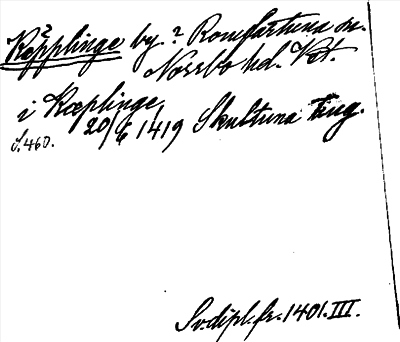 Köpplinge by. ? Romfartuna sn.
Norrbo hd. Vst.
i Kæplinge
20/6 1419 Skultuna ting.
S. 460.
Sv. dipl. fr. 1401. III.